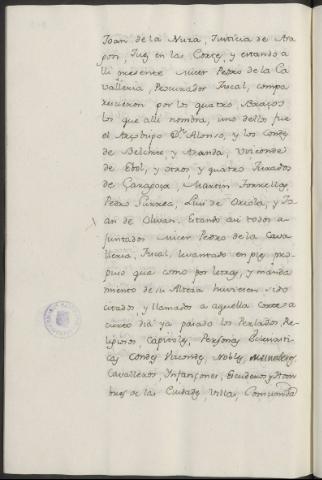 Joan de la Nuza, Justicia de Ara
gon, Juez en las Cortes, y estando a
lli presente Micer Pedro de la Ca
valleria, Procurador Fiscal, compa
recieron por los quatro Brazos
los que alli nombra, uno dellos fue
el Arzobispo Dn. Alonso, y los Condes
de Belchite, y Aranda, Vizconde
de Ebol, y otros, y quatro Jurados
de Zaragoza, Martin Torrellas,
Pedro Purrea, Luis de Oriola, y Jo
an de Olivan. Estando asi todos a
juntados Micer Pedro de la Cava
lleria, Fiscal, levantado en pie, pro
puso que como por letras, y manda
miento de su Alteza huviesen sido
citados, y llamados a aquella Corte a
cierto dia ya pasado los Perlados, Re
ligiosos, Capitoles, Personas Eclesiasti
cas, Condes, Vizcondes, Nobles,
Cavalleros, Infanzones, Escuderos, y Hom
bres de las Ciudades, Villas, Comunida